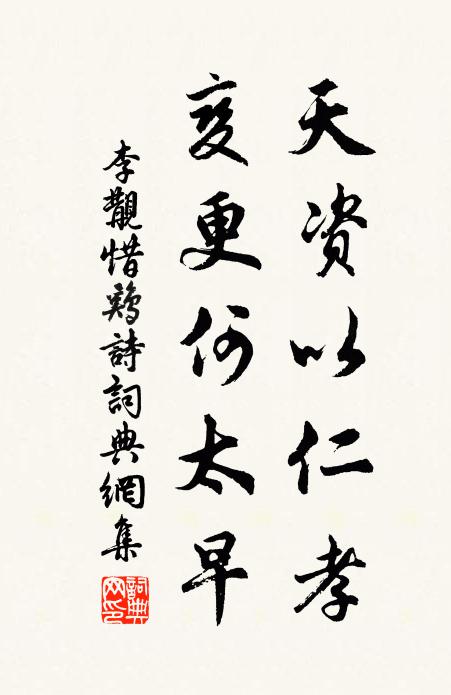 天資以仁孝
変更何太早
李觀惜鷄詩詞典網集
詞典网印